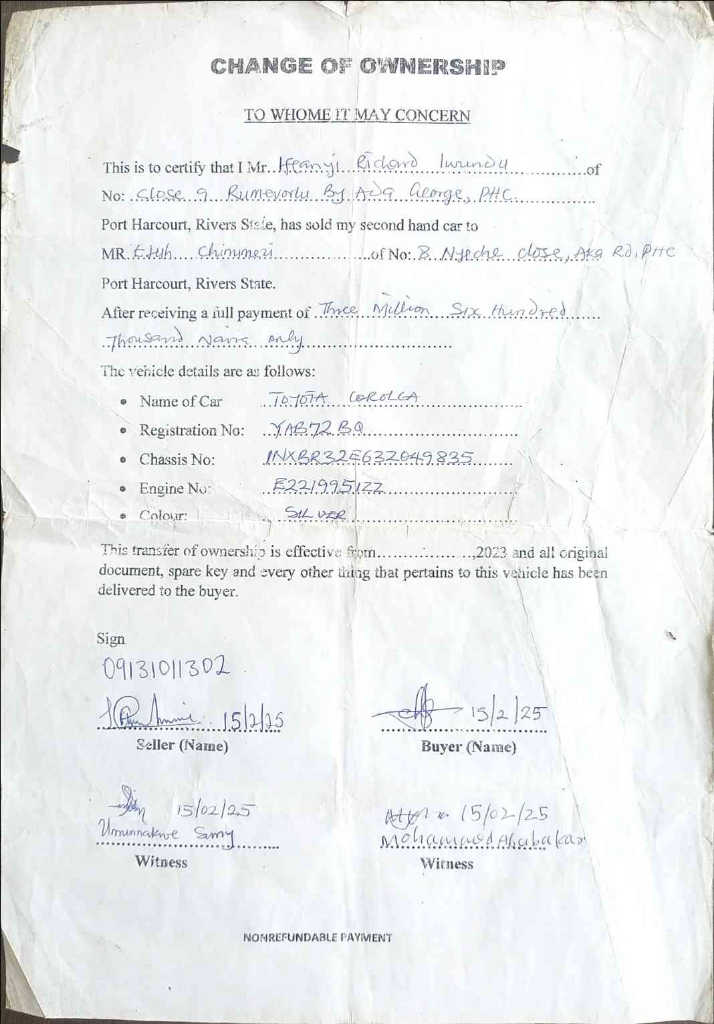 CHANGE OF OWNERSHIP
TO WHOME IT MAY CONCERN
This is to certify that I Mr. Ifeanyi Richard Iwundu of
No: Close 9 Rumevorlu By Ada George, PHC
Port Harcourt, Rivers State, has sold my second hand car to
MR. Chinmezi of No: 8 Nyeche close, Aka Rd, PHC
Port Harcourt, Rivers State.
After receiving a full payment of Three Million Six Hundred
Thousand Naira only
The vehicle details are as follows:
• Name of Car TOYOTA COROLLA
• Registration No: YAB72BQ
• Chassis No: 1NXBR32E63Z049835
• Engine No: E2219951ZZ
• Colour: SILVER
This transfer of ownership is effective from....................,2023 and all original
document, spare key and every other thing that pertains to this vehicle has been
delivered to the buyer.
Sign
09131011302
15/2/25 15/2/25
Seller (Name) Buyer (Name)
15/02/25 15/02/25
Umunnakwe Mohammed Abubakar
Witness Witness
NONREFUNDABLE PAYMENT